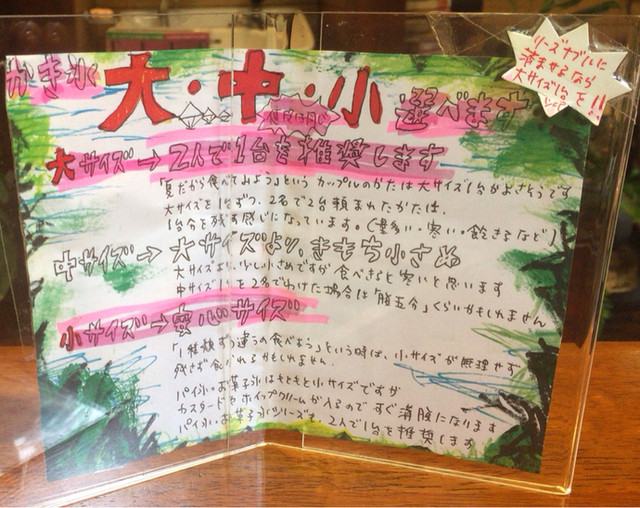 かき氷 大・中・小 選べます
リーズナブルに
済ませるなら
大サイズ1台を!!
大サイズ→2人で1台を推奨します
「夏だから食べてみよう」というカップルのかたは大サイズ1台がよさそうです
大サイズを1台ずつ、2名で2台頼まれたかたは、
1台分を残す感じになっています。(量多い・寒い・飽きるなど)
中サイズ→大サイズより、きもち小さめ
大サイズより、少し小さめですが食べきると寒いと思います
中サイズ1台を2名でわけた場合は「腹五分」くらいかもしれません
小サイズ→安心サイズ
「1種類ずつ違うの食べよう」という時は、小サイズが無理せず
残さず食べれるかもしれません。
パイ氷・お菓子氷はもともと小サイズですが
カスタードやホイップクリームが入るのですぐ満腹になります
パイ氷・お菓子氷シリーズも、2人で1台を推奨します